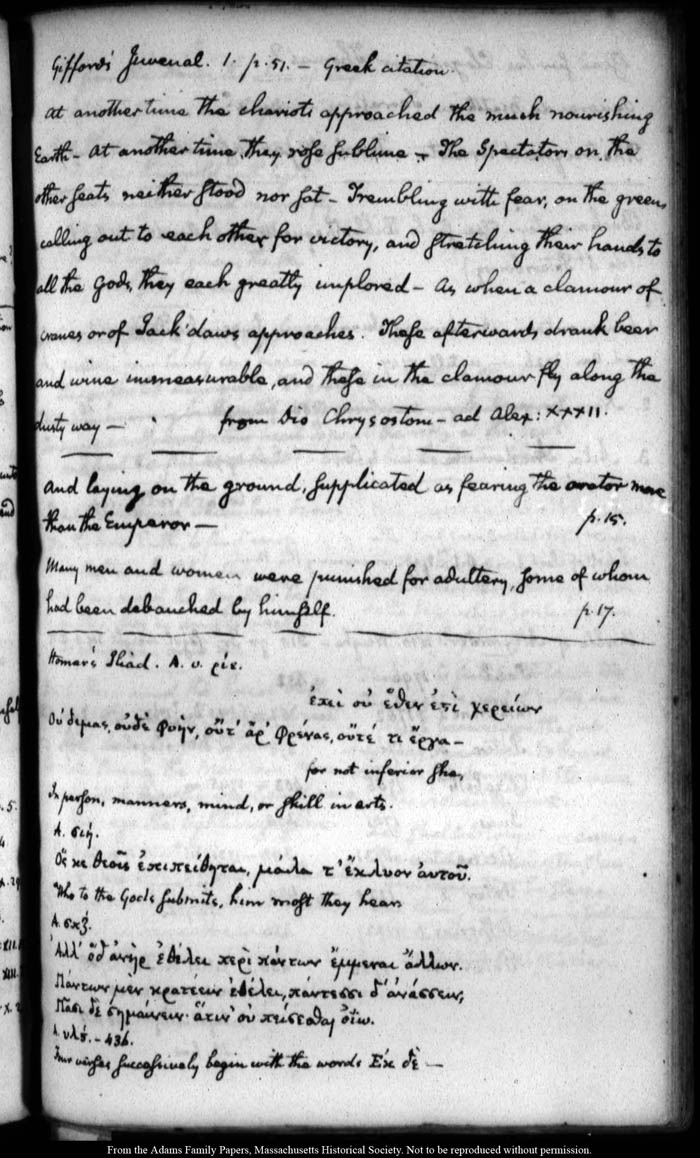 Gifford's Juvenal. 1. p. 51. — Greek citation.
At another time the chariots approached the much nourishing
Earth — At another time they rose sublime — The Spectators on the
other seats neither stood nor sat — Trembling with fear, on the green,
calling out to each other for victory, and stretching their hands to
all the Gods, they each greatly implored — As when a clamour of
cranes or of Jack daws approaches. These afterwards drank beer
and wine immeasurable, and these in the clamour fly along the
dusty way — from Dio Chrysostom — ad Alex: XXXII.
And laying on the ground, supplicated as fearing the orator more
than the Emperor — p. 15.
Many men and women were punished for adultery, some of whom
had been debauched by himself. p. 17.
Homer's Iliad. A. v. ριε.
ἐπεὶ οὐ ἕθεν ἐστὶ χερείων
Οὐ δεμας, οὐδὲ φυὴν, οὔτ' ἂρ' φρένας, οὔτέ τι ἔργα —
for not inferior she,
In person, manners, mind, or skill in arts.
A. σιή.
Ὅς κε θεοῖς ἐπιπείθηται, μάλα τ' ἔκλυον αυτοῦ.
Who to the Gods submits, him most they hear
A. σπζ.
Ἀλλ' ὅδ' ἀνὴρ ἐθέλει περὶ πάντων ἔμμεναι ἄλλων.
Πάντων μὲν κρατέειν ἐθέλει, πάντεσσι δ' ἀνάσσειν,
Πᾶσι δὲ σημαίνειν· ἅτιν' οὐ πείσεσθαι ὀΐω.
A. υλς. — 436.
Four verses successively begin with the words Ἐκ δὲ —
From the Adams Family Papers, Massachusetts Historical Society. Not to be reproduced without permission.